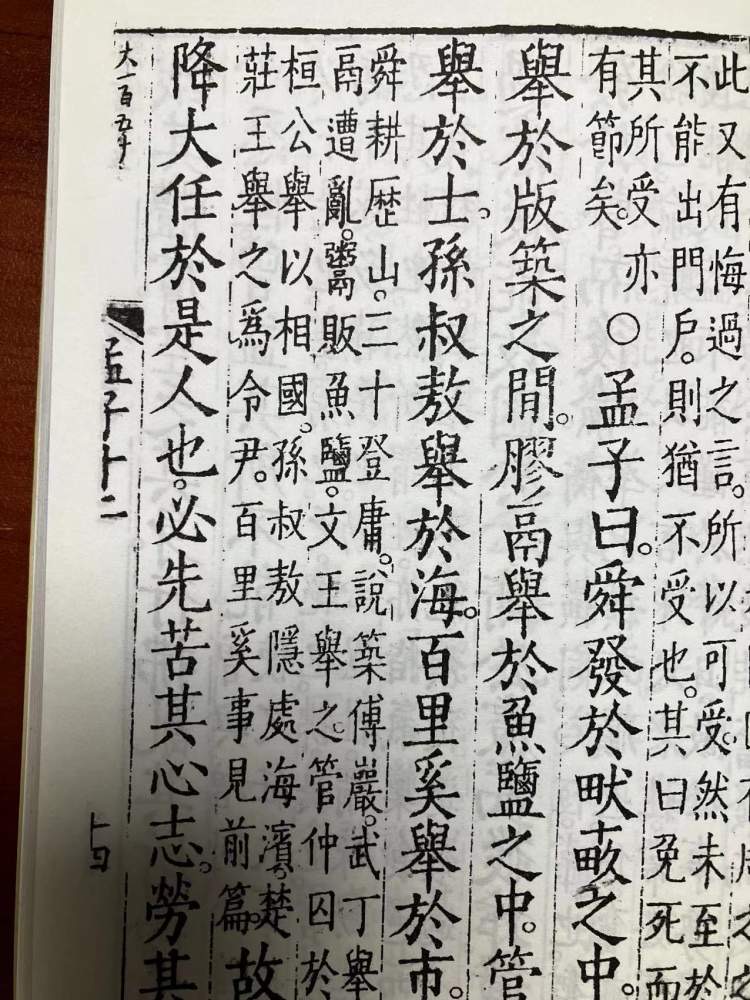 此又有悔過之言。所以可受。然未至於
不能出門戶。則猶不受也。其曰免死而
其所受亦
有節矣。
○孟子曰。舜發於畎畝之中。
舉於版築之間。膠鬲舉於魚鹽之中。管
舉於士。孫叔敖舉於海。百里奚舉於市。
舜耕歴山。三十登庸。說築傅巖。武丁舉
鬲遭亂。鬻販魚鹽。文王舉之。管仲囚於
桓公舉以相國。孫叔敖隱處海濱。楚
莊王舉之爲令尹。百里奚事見前篇。
故
降大任於是人也。必先苦其心志。勞其
大一百五十
孟子十二
十四